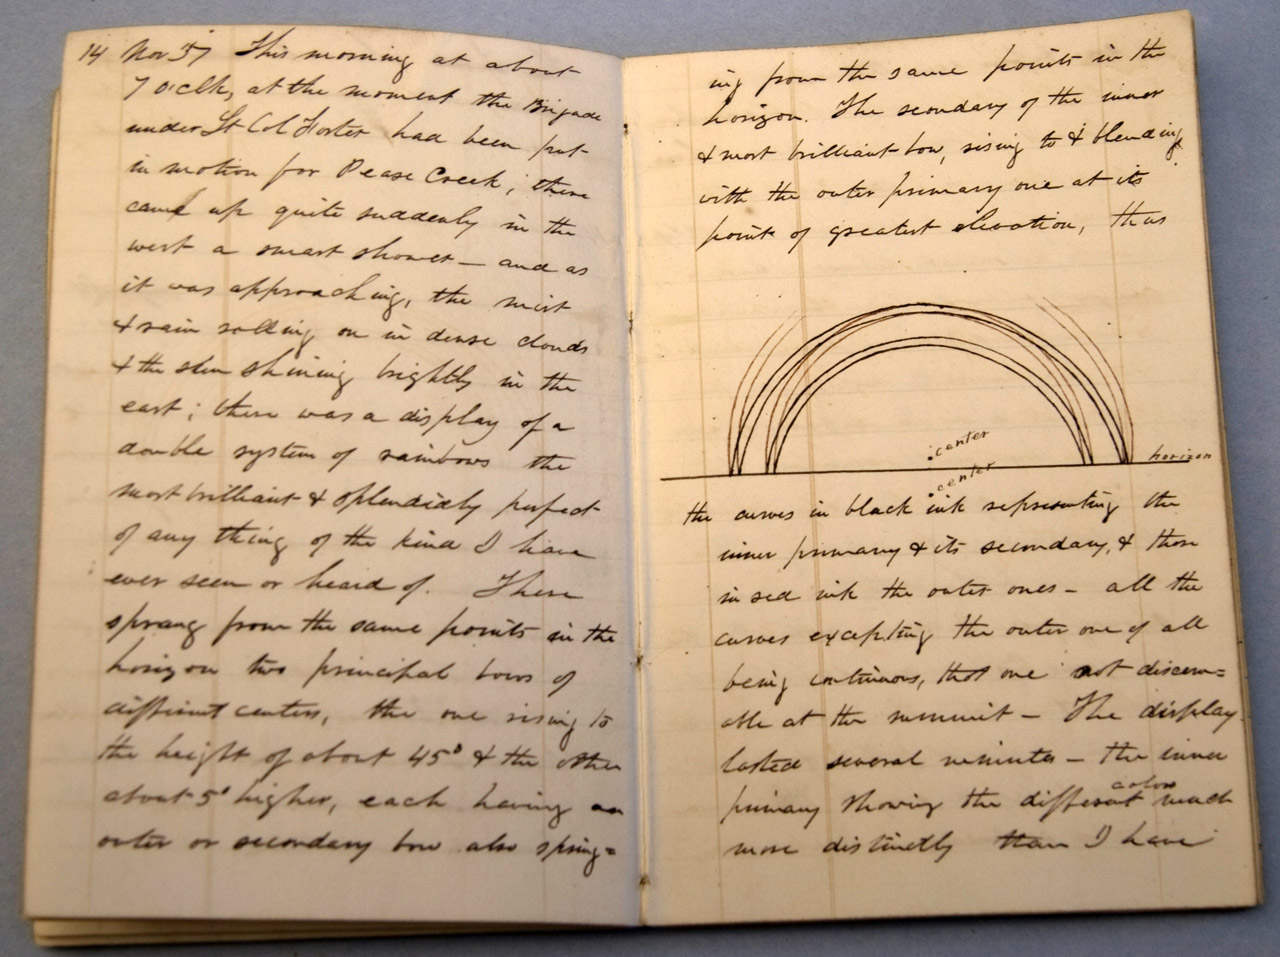 14 Nov 57 This morning at about
7 o'clk, at the moment the Brigade
under Lt Col Foster had been put
in motion for Pease Creek; there
came up quite suddenly in the
west a smart shower — and as
it was approaching, the mist
& rain rolling on in dense clouds
& the sun shining brightly in the
east; there was a display of a
double system of rainbows the
most brilliant & splendidly perfect
of any thing of the kind I have
ever seen or heard of. There
sprang from the same points in the
horizon two principal bows of
different centers, the one rising to
the height of about 45° & the other
about 5° higher, each having an
outer or secondary bow also spring=
ing from the same points in the
horizon. The secondary of the inner
& most brilliant bow, rising to & blending
with the outer primary one at its
point of greatest elevation, thus
center
horizon
center
the curves in black ink representing the
inner primary & its secondary, & those
in red ink the outer ones — all the
curves excepting the outer one of all
being continuous, that one not discern=
able at the summit — The display
lasted several minutes — the inner
colors
primary showing the different much
more distinctly than I have